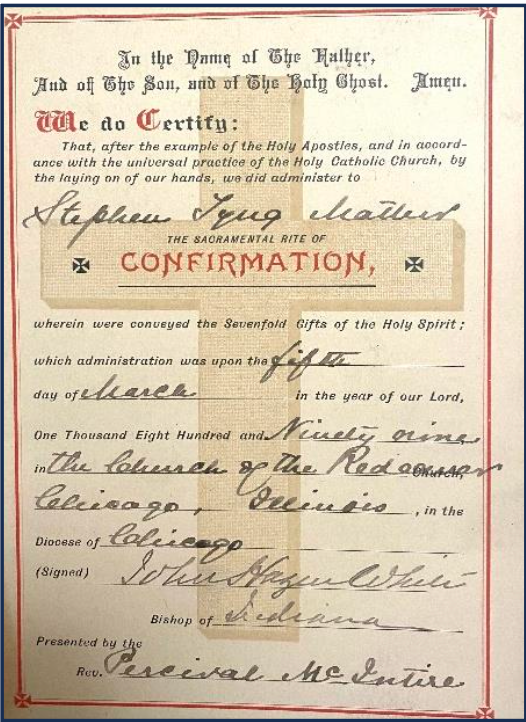 In the Name of The Father,
And of The Son, and of The Holy Ghost. Amen.
We do Certify:
That, after the example of the Holy Apostles, and in accord-
ance with the universal practice of the Holy Catholic Church, by
the laying on of our hands, we did administer to
Stephen Tyng Mather
THE SACRAMENTAL RITE OF
CONFIRMATION,
wherein were conveyed the Sevenfold Gifts of the Holy Spirit;
which administration was upon the fifth
day of March in the year of our Lord,
One Thousand Eight Hundred and Ninety nine
in the Church of the Redeemer Church,
Chicago, Illinois, in the
Diocese of Chicago
(Signed) John Hazen White
Bishop of Indiana
Presented by the
Rev. Percival McIntire